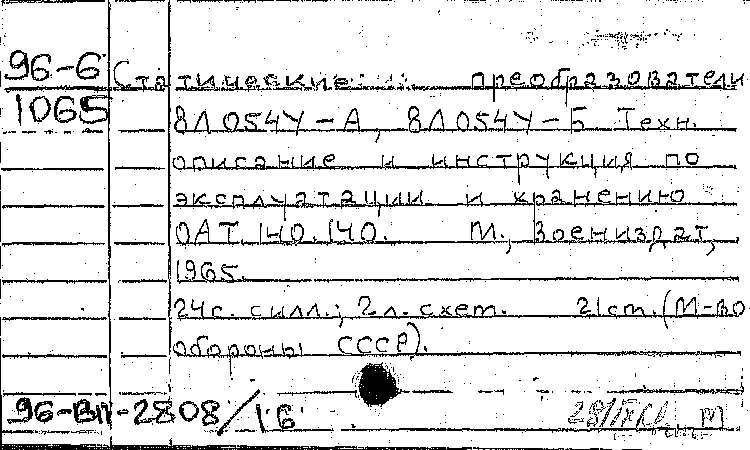 96-6 Статические преобразователи
1065 8Л054У-А, 8Л054У-Б Техн.
описание и инструкция по
эксплуатации и хранению
ОАТ.140.140. М., Воениздат,
1965.
24с. с илл.; 2л. схем. 21 cm. (М-во
обороны СССР).
96-ВП-2808/16 М